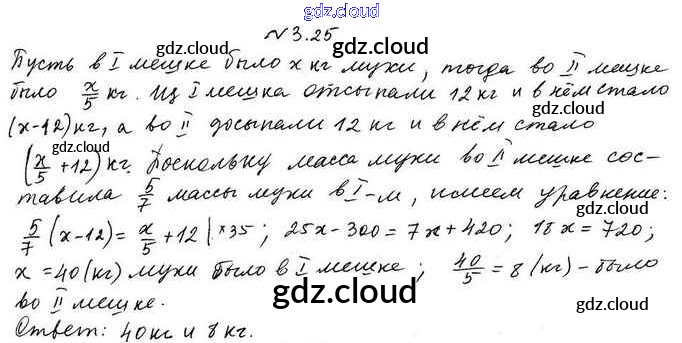 gdz.cloud
№ 3.25
gdz.cloud gdz.cloud
Пусть в I мешке было x кг муки, тогда во II мешке
было x/5 кг. Из I мешка отсыпали 12 кг и в нём стало
gdz.cloud gdz.cloud
(x-12) кг, а во II досыпали 12 кг и в нём стало
(x/5 + 12) кг. Поскольку масса муки во II мешке сос-
gdz.cloud gdz.cloud
тавила 5/7 массы муки в I-м, имеем уравнение:
5/7 (x-12) = x/5 + 12 | *35; 25x - 300 = 7x + 420; 18x = 720;
x = 40 (кг) муки было в I мешке; 40/5 = 8 (кг) - было
gdz.cloud
во II мешке.
Ответ: 40 кг и 8 кг.
gdz.cloud